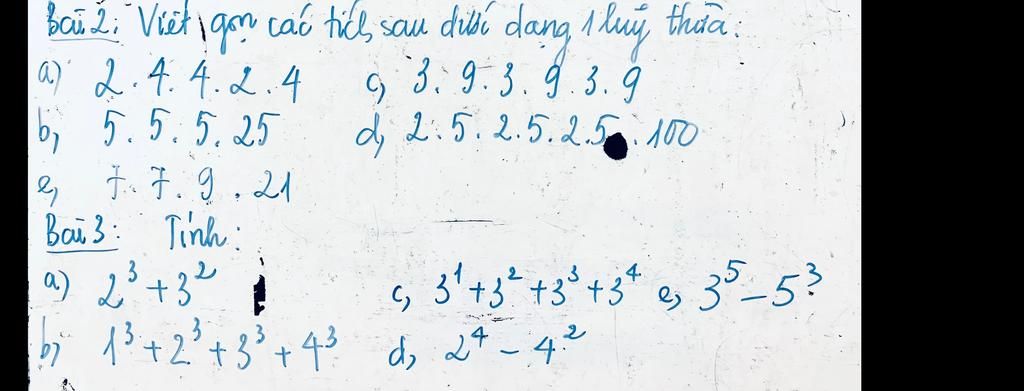 Bài 2: Viết gọn các tích sau dưới dạng 1 luỹ thừa:
a) 2 . 4 . 4 . 2 . 4 c, 3 . 9 . 3 . 9 . 3 . 9
b, 5 . 5 . 5 . 25 d, 2 . 5 . 2 . 5 . 2 . 5 . 100
e, 7 . 7 . 9 . 21
Bài 3: Tính:
a) 2³ + 3² c, 3¹ + 3² + 3³ + 3⁴ e, 3⁵ - 5³
b, 1³ + 2³ + 3³ + 4³ d, 2⁴ - 4²